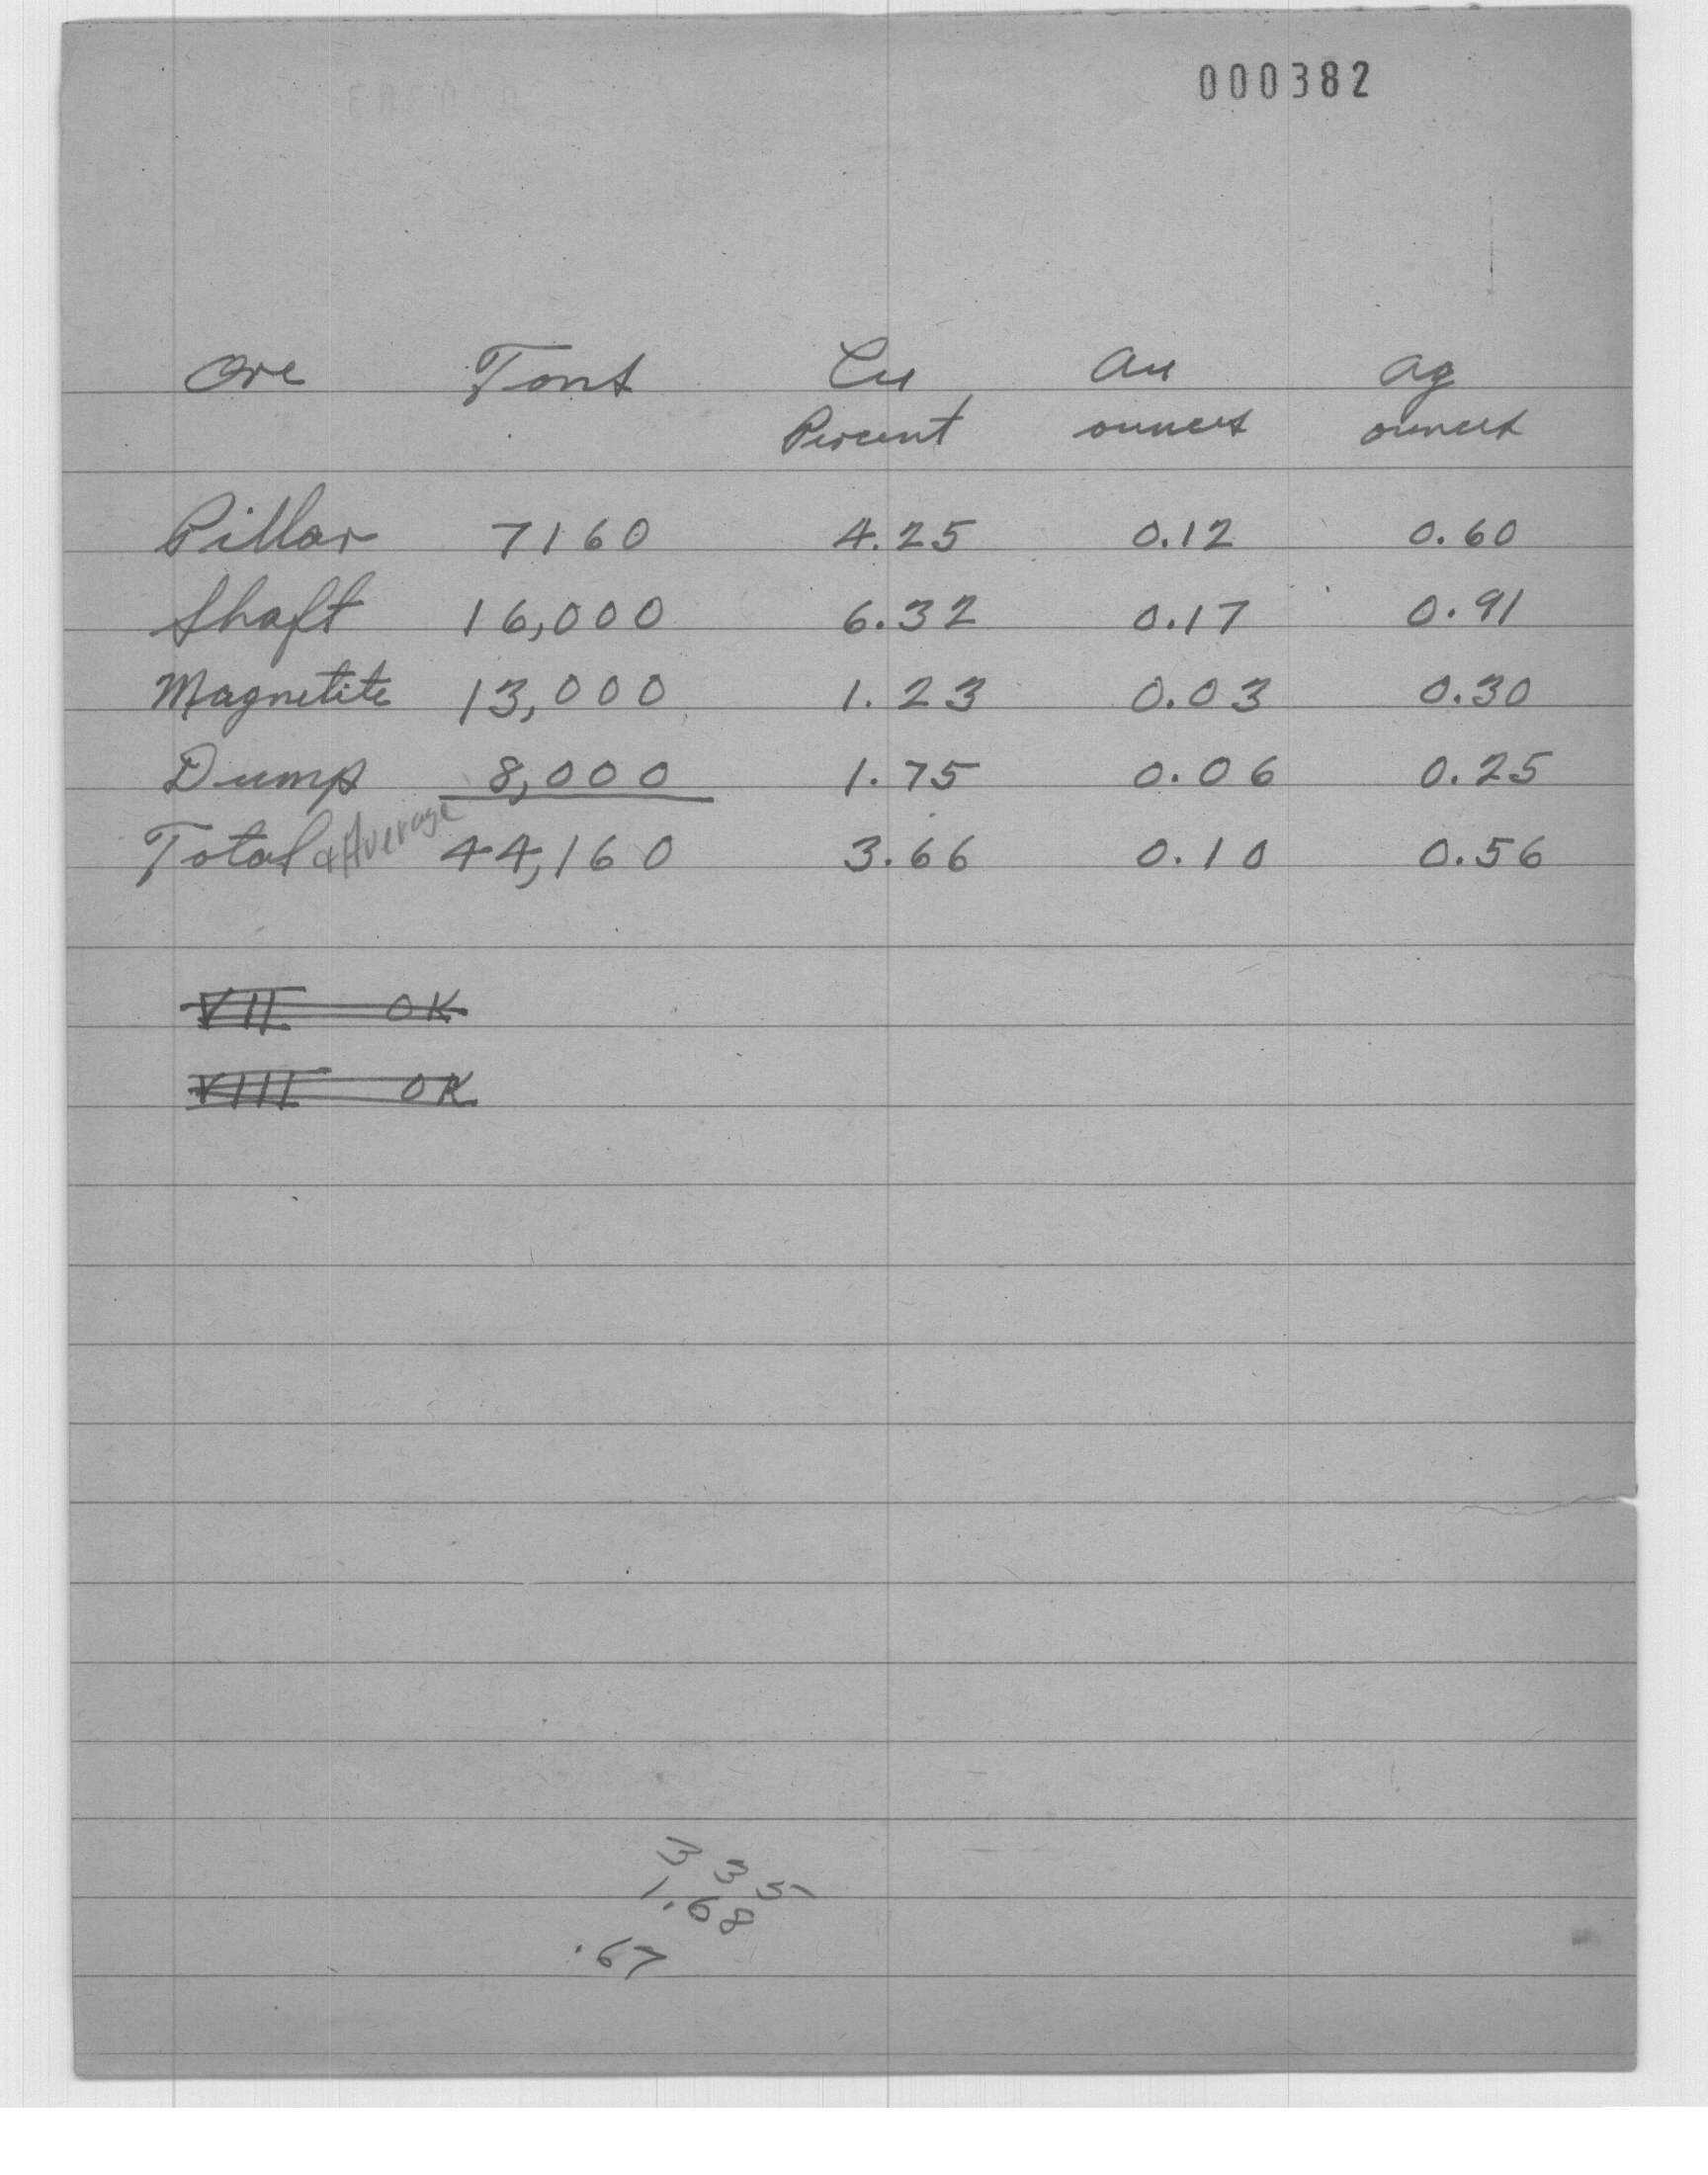 000382
Ore Tons Cu Au Ag
Percent ounces ounces
Pillar 7160 4.25 0.12 0.60
Shaft 16,000 6.32 0.17 0.91
Magnetite 13,000 1.23 0.03 0.30
Dump 8,000 1.75 0.06 0.25
Total & Average 44,160 3.66 0.10 0.56
VII OK
VIII OK
335
1.68
.67